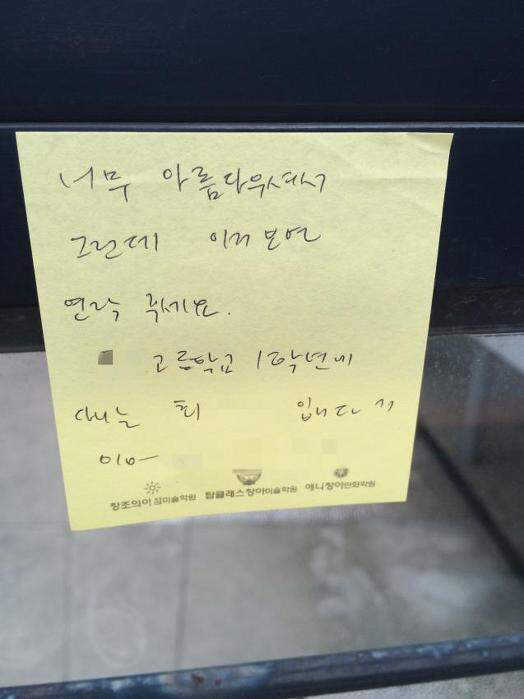 너무 아름다우셔서
그런데 이거 보면
연락 주세요.
고등학교 1학년에
다니는 최 입니다
이
창조의아침미술학원 탑클래스창아미술학원 애니창아만화학원